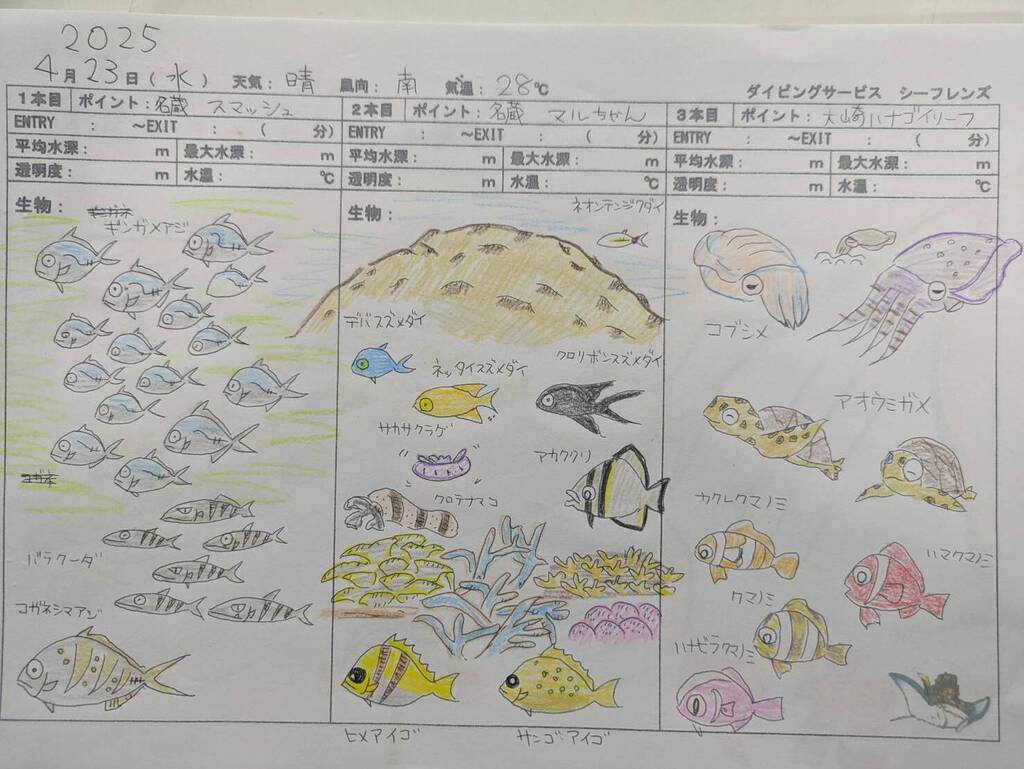 2025
4月23日(水) 天気:晴 風向:南 気温:28℃
ダイビングサービス シーフレンズ
1本目 ポイント:名蔵 スマッシュ
ENTRY : ～EXIT : ( 分)
平均水深: m 最大水深: m
透明度: m 水温: ℃
生物:
ギンガメアジ
バラクーダ
コガネシマアジ
2本目 ポイント:名蔵 マルちゃん
ENTRY : ～EXIT : ( 分)
平均水深: m 最大水深: m
透明度: m 水温: ℃
生物:
ネオンテンジクダイ
デバスズメダイ
ネッタイスズメダイ
クロリボンスズメダイ
サカサクラゲ
アカククリ
クロテナマコ
ヒメアイゴ
サンゴアイゴ
3本目 ポイント:大崎ハナゴイリーフ
ENTRY : ～EXIT : ( 分)
平均水深: m 最大水深: m
透明度: m 水温: ℃
生物:
コブシメ
アオウミガメ
カクレクマノミ
ハマクマノミ
クマノミ
ハナビラクマノミ